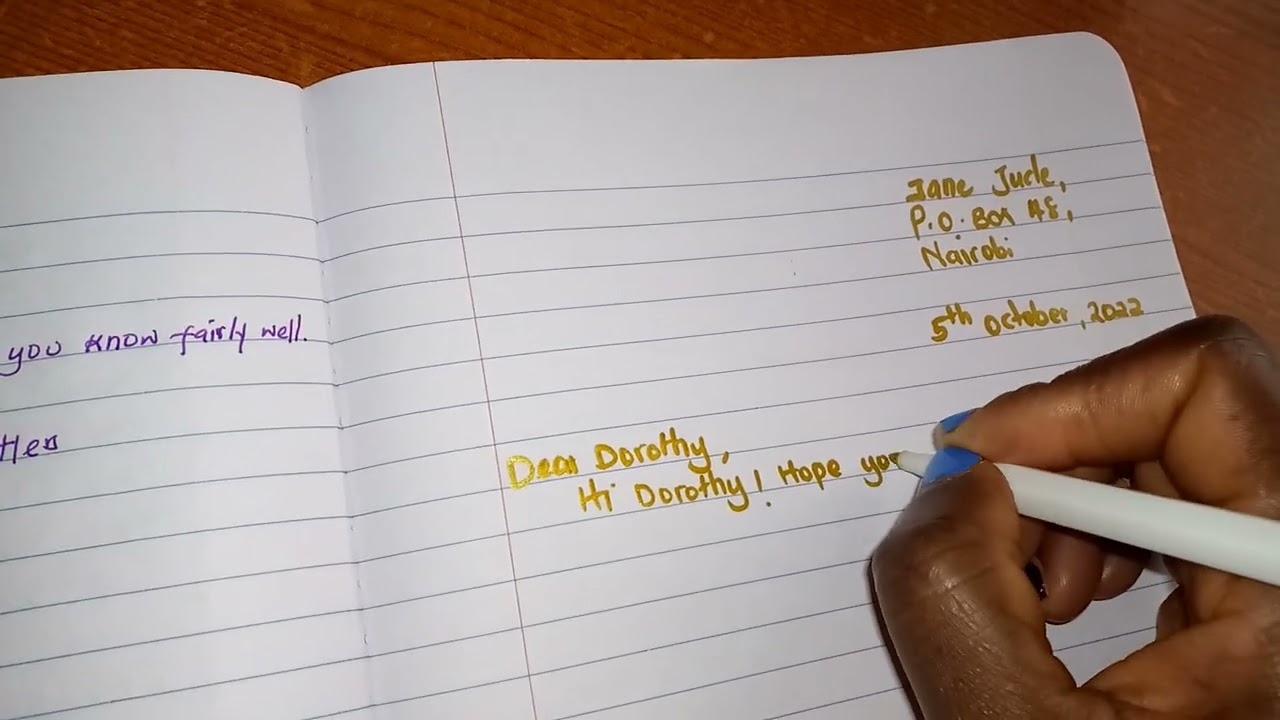 you know fairly well.
Jane Jude,
P.O. Box 48,
Nairobi
5th October, 2022
Dear Dorothy,
Hi Dorothy! Hope you